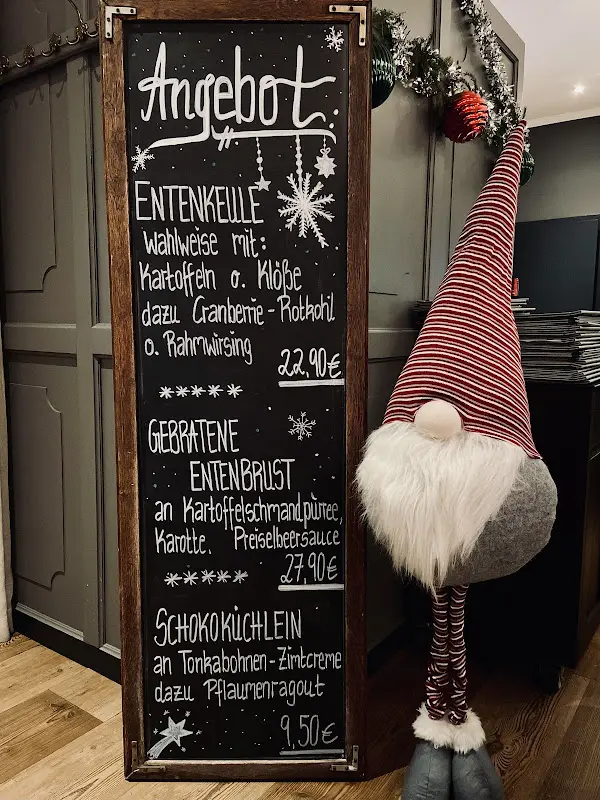 Angebot:
ENTENKEULE
Wahlweise mit:
Kartoffeln o. Klöße
dazu Cranberrie-Rotkohl
o. Rahmwirsing
22,90€
GEBRATENE
ENTENBRUST
an Kartoffelschmandpürree,
Karotte, Preiselbeersauce
27,90€
SCHOKOKÜCHLEIN
an Tonkabohnen-Zimtcreme
dazu Pflaumenragout
9,50€